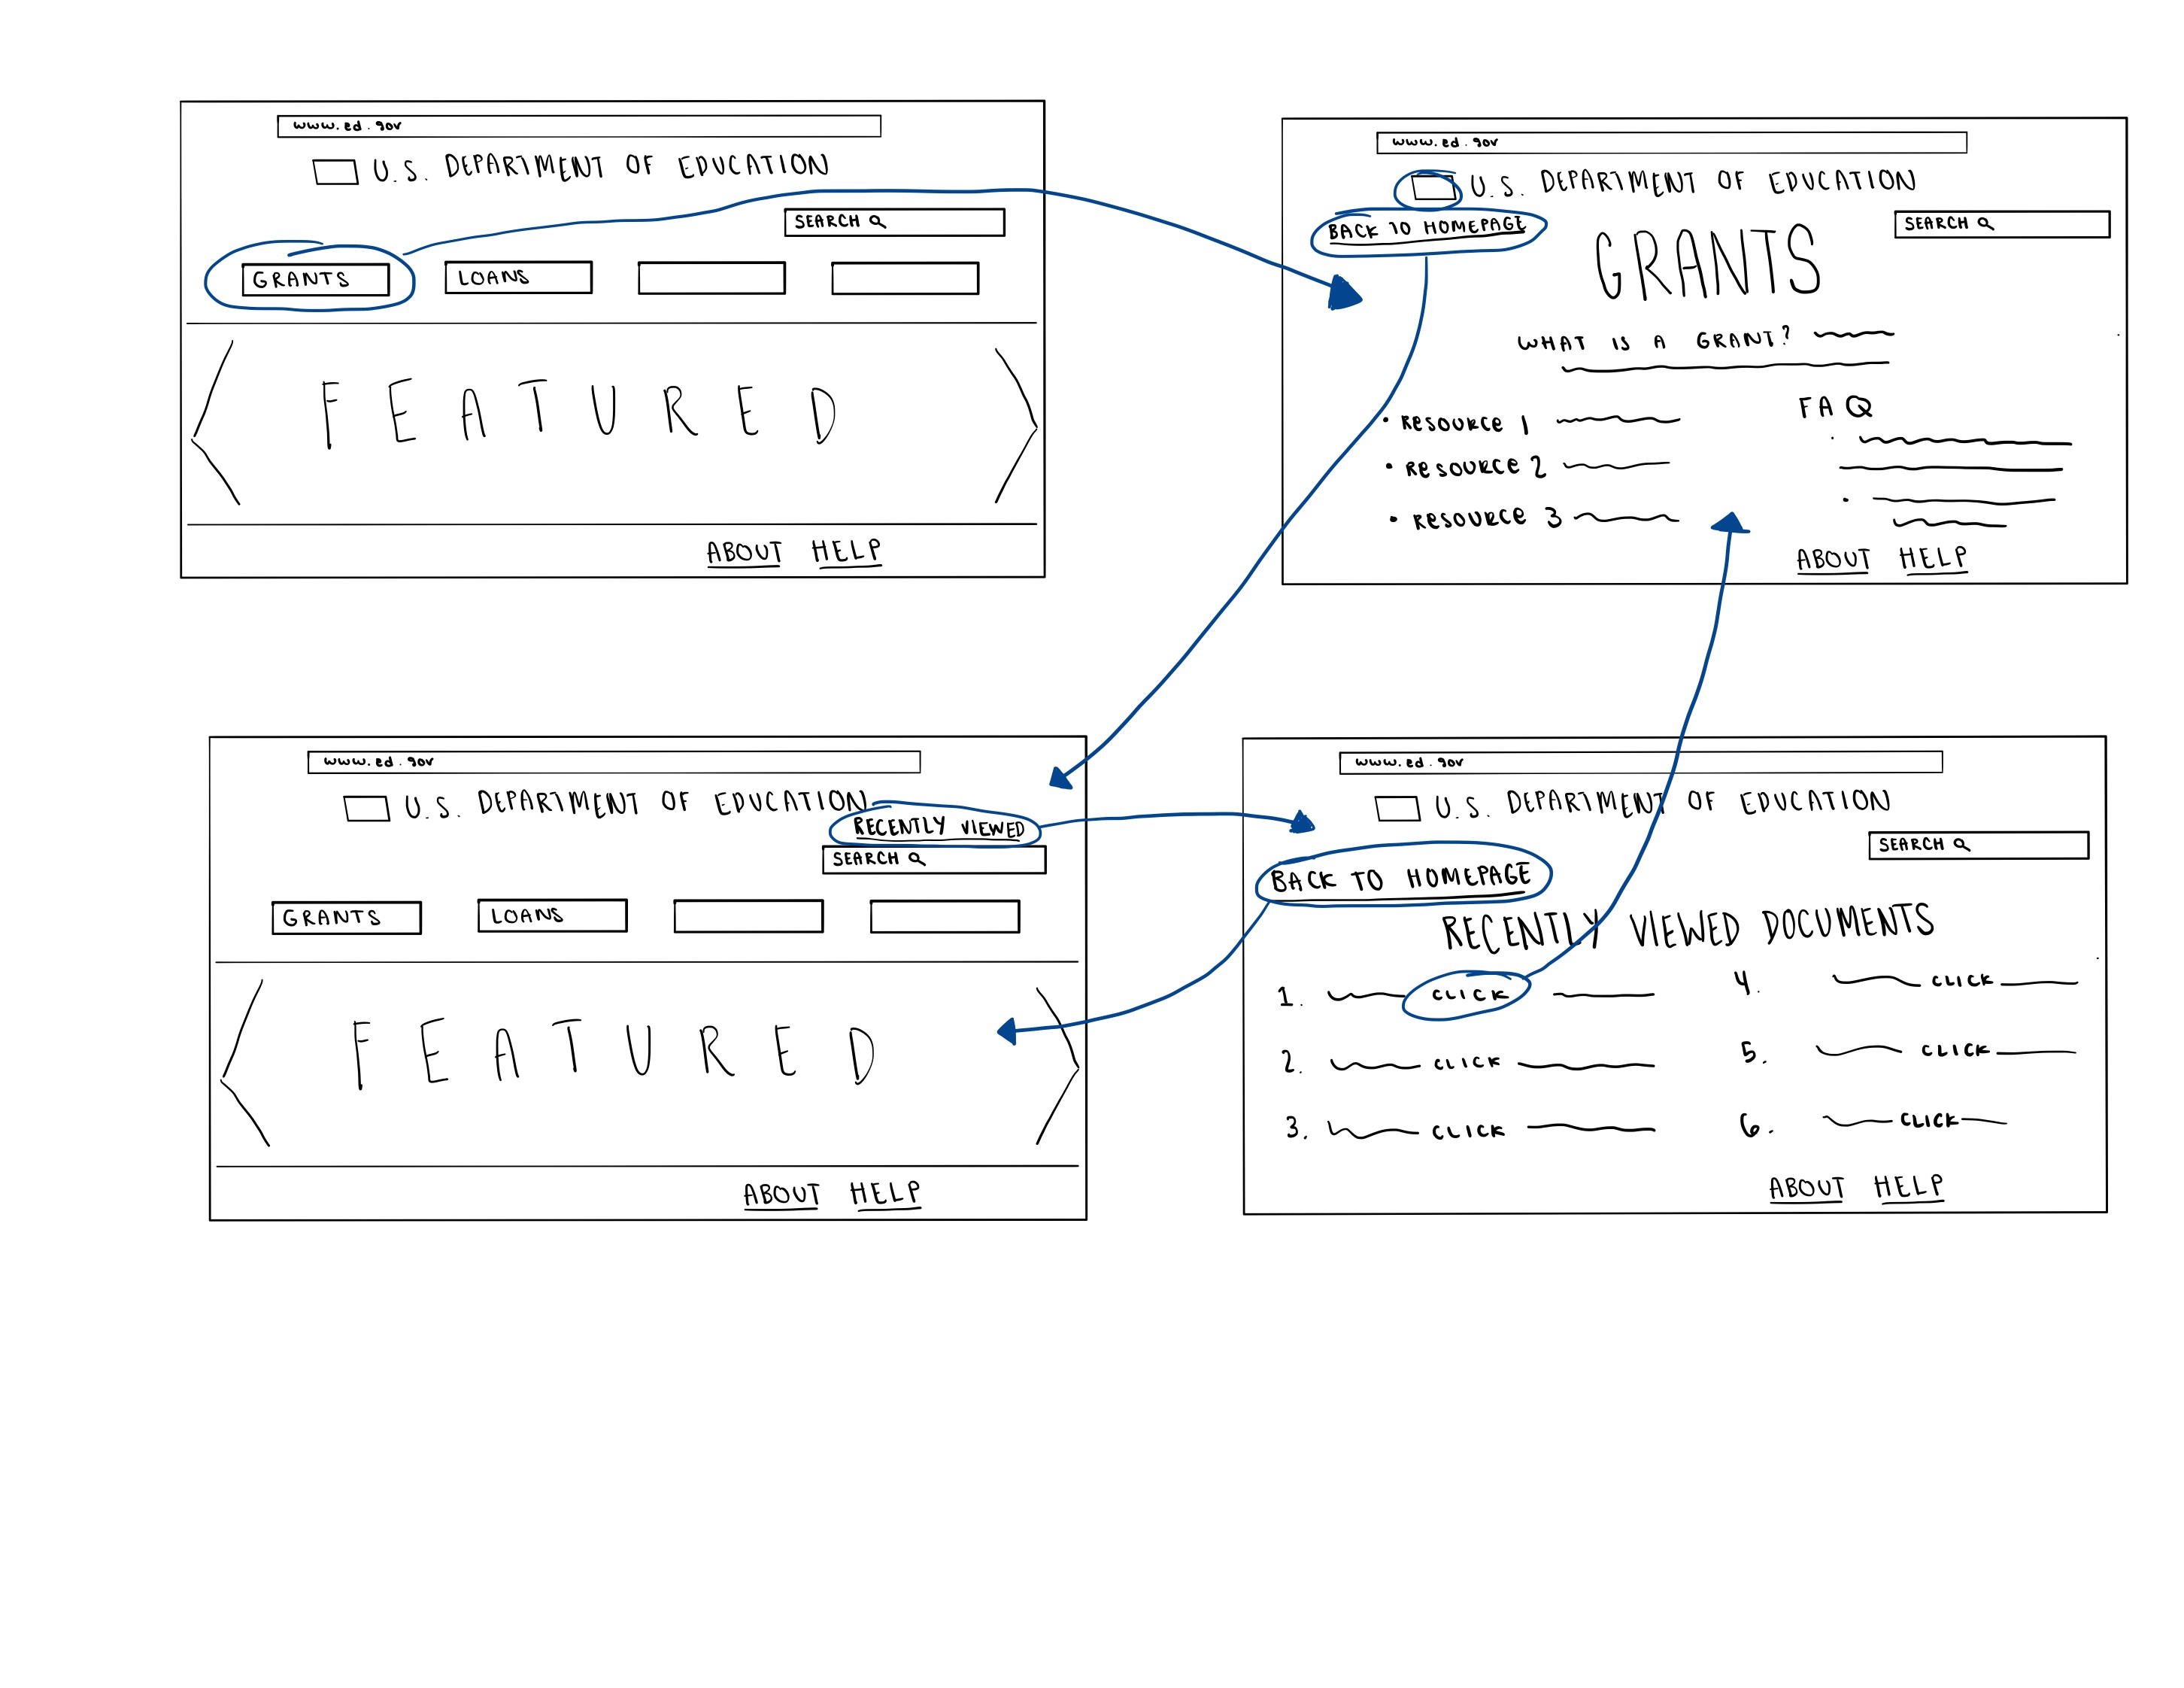 www.ed.gov
U.S. DEPARTMENT OF EDUCATION
SEARCH
GRANTS LOANS
FEATURED
ABOUT HELP
www.ed.gov
U.S. DEPARTMENT OF EDUCATION
BACK TO HOMEPAGE
SEARCH
GRANTS
WHAT IS A GRANT?
• RESOURCE 1
• RESOURCE 2
• RESOURCE 3
FAQ
ABOUT HELP
www.ed.gov
U.S. DEPARTMENT OF EDUCATION
RECENTLY VIEWED
SEARCH
GRANTS LOANS
FEATURED
ABOUT HELP
www.ed.gov
U.S. DEPARTMENT OF EDUCATION
SEARCH
BACK TO HOMEPAGE
RECENTLY VIEWED DOCUMENTS
1. CLICK
2. CLICK
3. CLICK
4. CLICK
5. CLICK
6. CLICK
ABOUT HELP